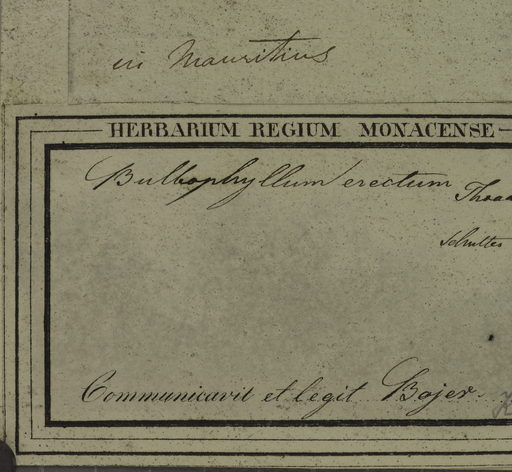 in Mauritius
HERBARIUM REGIUM MONACENSE
Bulbophyllum erectum
Schultes
Communicavit et legit Bojer